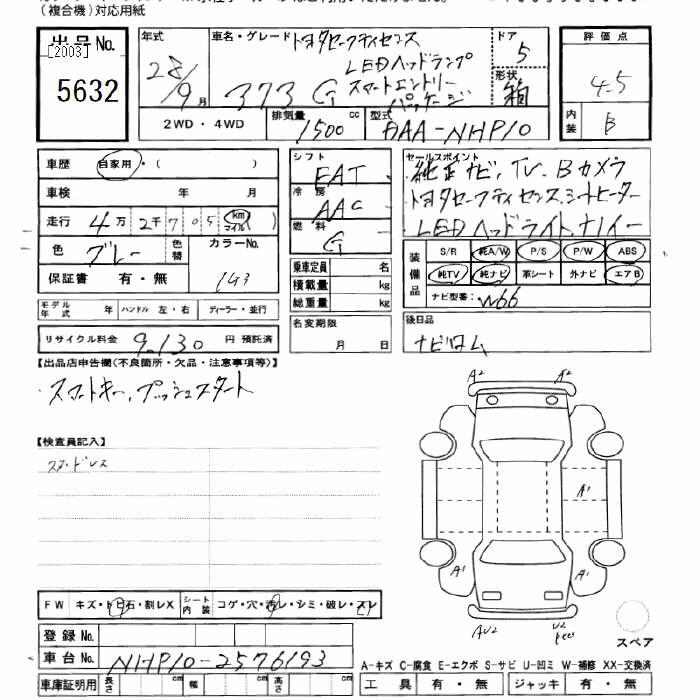 (複合機)対応用紙
出品No.
[2003]
5632
年式
28/9月
車名・グレード トヨタセーフティセンス
LEDヘッドランプ
スマートエントリー
パッケージ
373 G
ドア
5
形状
箱
評価点
4.5
内装
B
2WD・4WD
排気量
1500 cc
型式
DAA-NHP10
車歴
自家用・( )
車検 年 月
走行 4万2千705 km マイル( )
色
グレー
色替
カラーNo.
1G3
保証書 有・無
モデル年式 年 ハンドル 左・右 ディーラー・並行
リサイクル料金 9,130 円 預託済
シフト
FAT
冷房
AAC
燃料
G
乗車定員 名
積載量 kg
総重量 kg
名変期限
月 日
セールスポイント
純正ナビ,TV,Bカメラ
トヨタセーフティセンス,シートヒーター
LEDヘッドライト,ナノイー
装備品
S/R 純A/W P/S P/W ABS
純TV 純ナビ 革シート 外ナビ エアB
ナビ型番: W66
後日品
ナビロム
【出品店申告欄(不良箇所・欠品・注意事項等)】
・スマートキー,プッシュスタート
【検査員記入】
A2 A2
A1
A1 A1
AU2 U2
FW キズ・トビ石・割レX
シート内装 コゲ・穴・汚レ・シミ・破レ・スレ
登録No.
車台No. NHP10-2576193
車庫証明用 長さ cm 幅 cm 高さ cm
スペア
A-キズ C-腐食 E-エクボ S-サビ U-凹ミ W-補修 XX-交換済
工具 有・無 ジャッキ 有・無